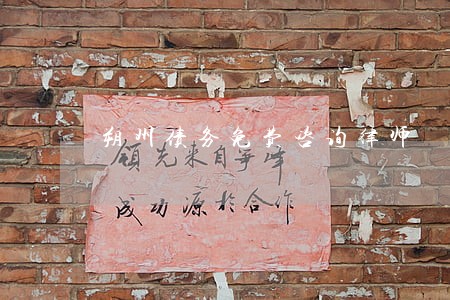 朔州债务免费咨询律师
领先来自争峰
成功源於合作